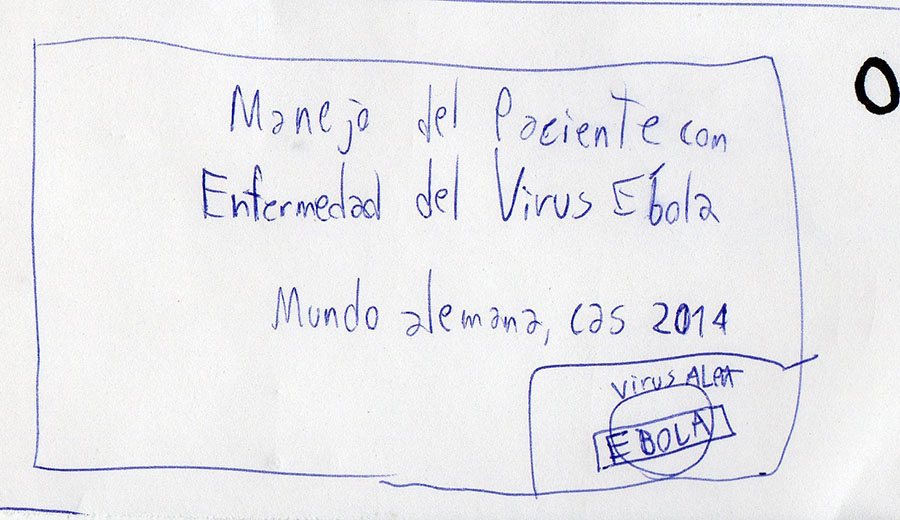 Manejo del Paciente con
Enfermedad del Virus Ébola
Mundo alemana, cas 2014
Virus
EBOLA
O